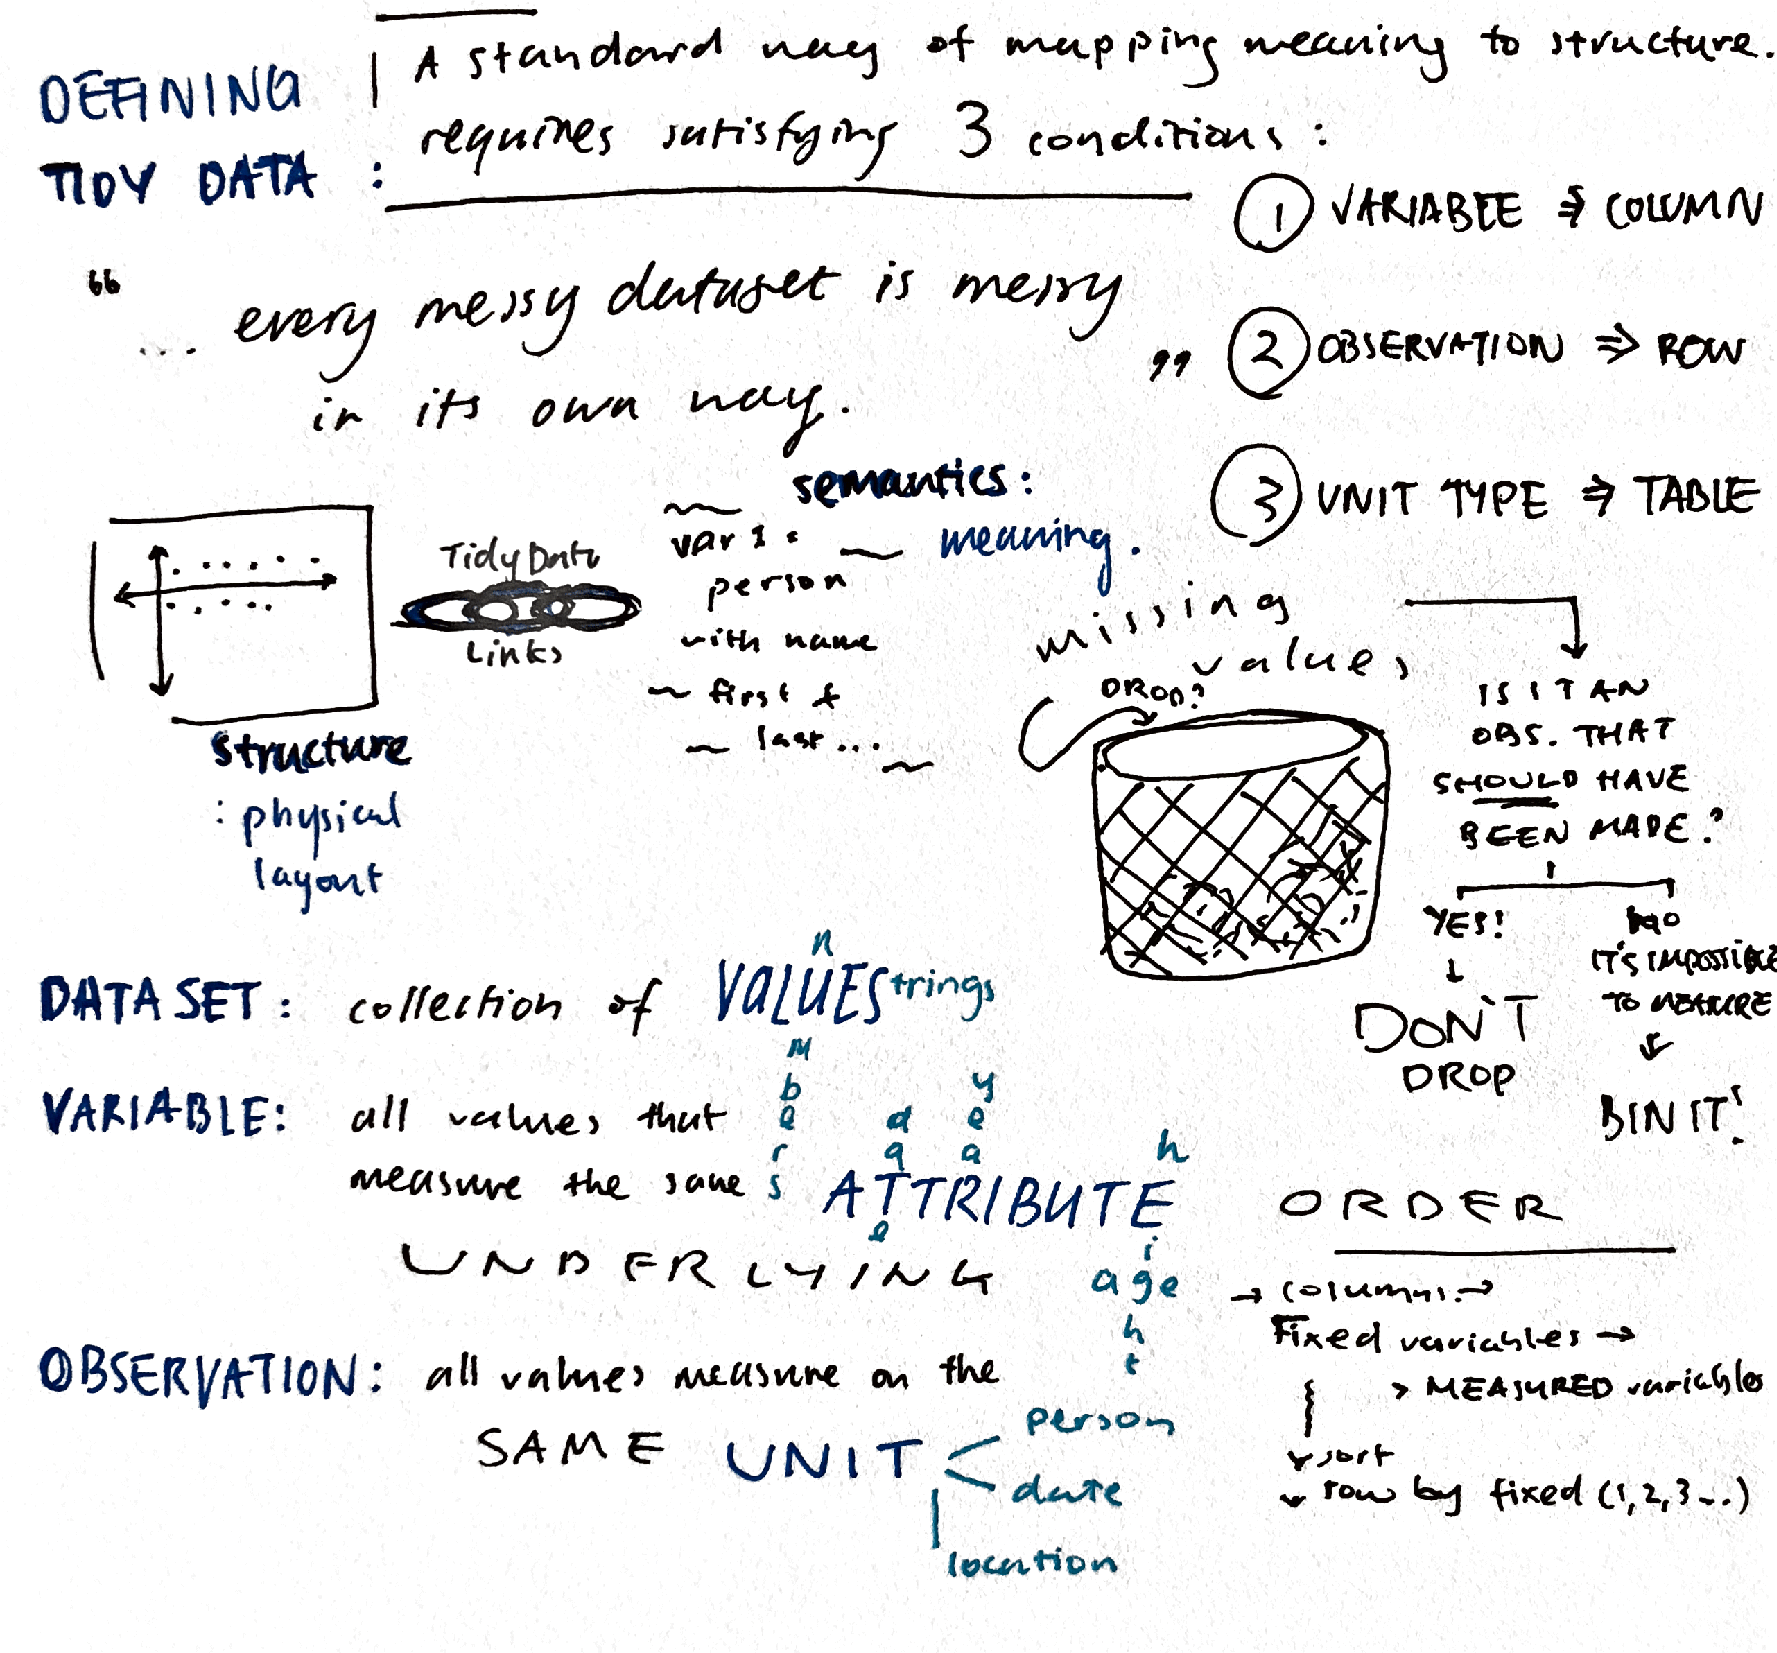 DEFINING
TIDY DATA :
A standard way of mapping meaning to structure.
requires satisfying 3 conditions :
① VARIABLE ⇒ COLUMN
② OBSERVATION ⇒ ROW
③ UNIT TYPE ⇒ TABLE
“ ... every messy dataset is messy
in its own way. ”
structure
: physical
layout
Tidy Data
Links
semantics :
meaning.
var 1 :
person
with name
first &
last ...
missing
values
DROP?
IS IT AN
OBS. THAT
SHOULD HAVE
BEEN MADE?
YES!
↓
DON'T
DROP
NO
IT'S IMPOSSIBLE
TO MEASURE
↓
BIN IT!
DATASET : collection of VALUES
strings
numbers
VARIABLE : all values that
measure the same ATTRIBUTE
UNDERLYING
date
year
height
age
OBSERVATION : all values measure on the
SAME UNIT
person
date
location
ORDER
→ columns →
Fixed variables →
> MEASURED variables
sort
row by fixed (1, 2, 3 ...)